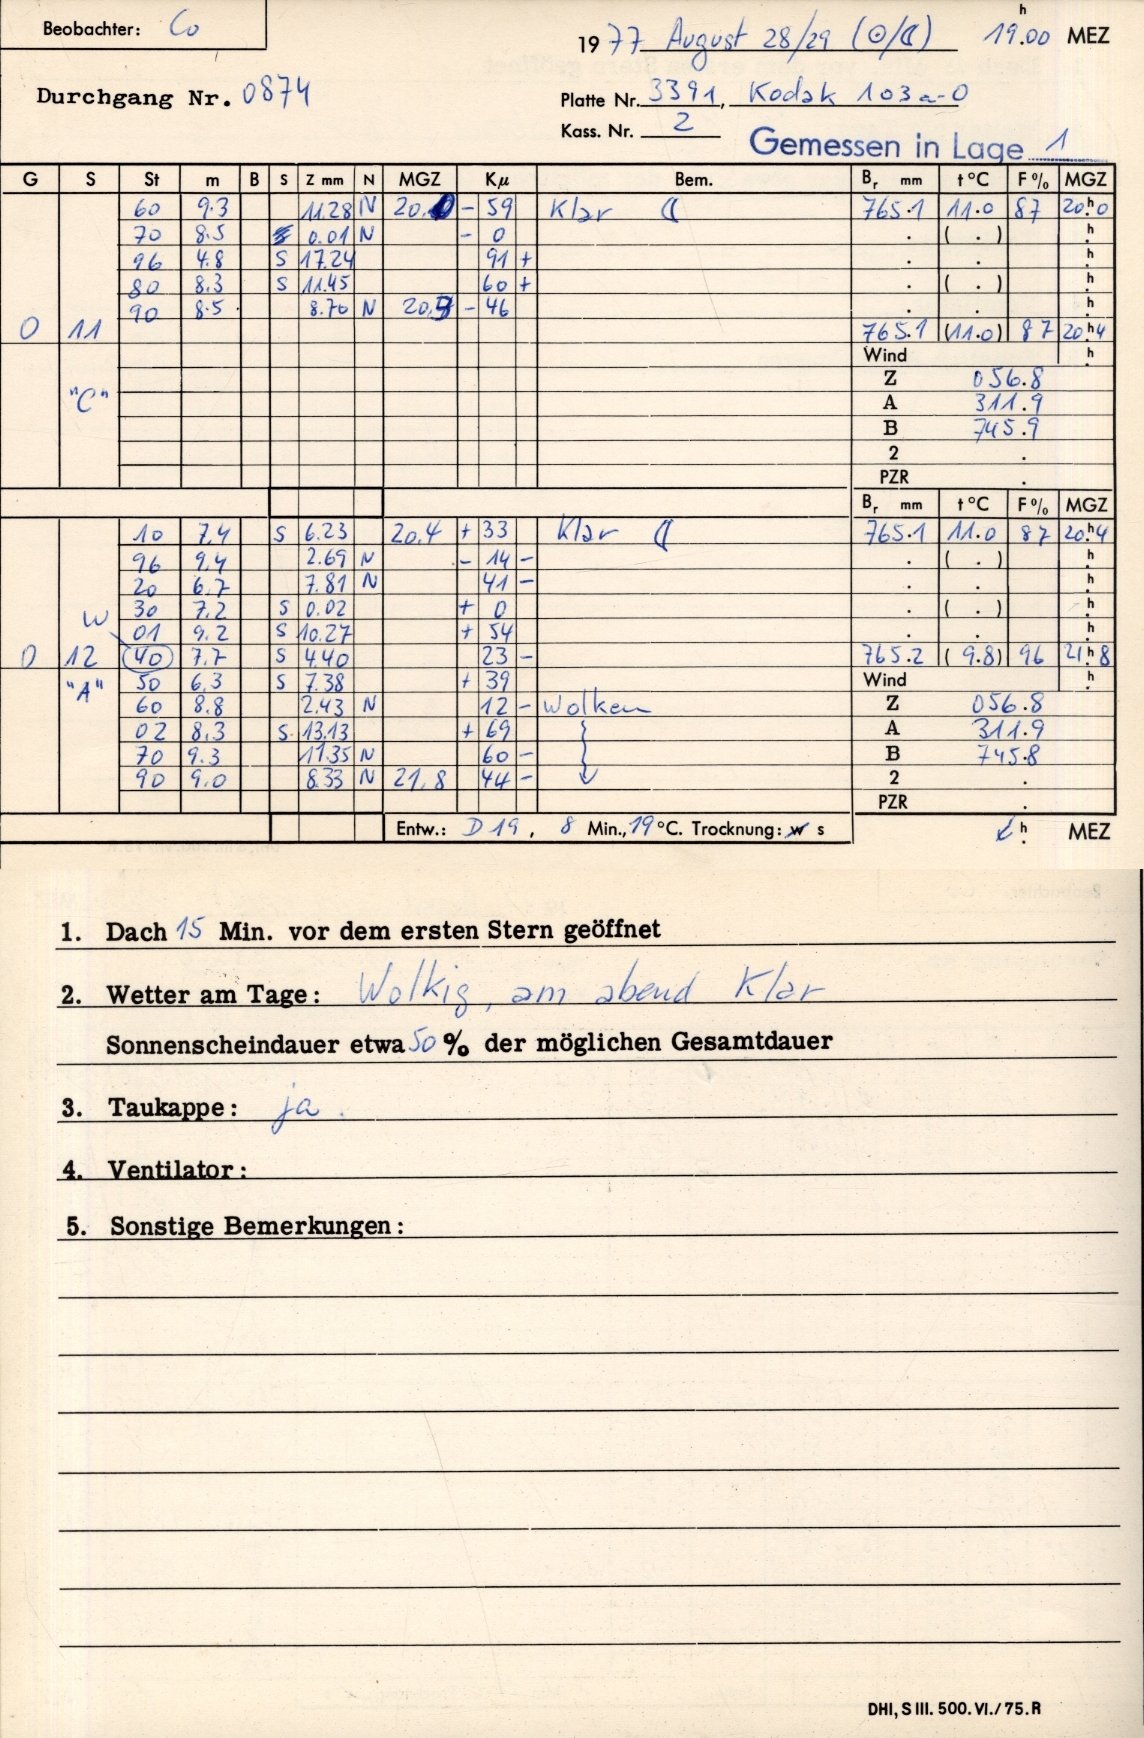 Beobachter: Co
1977 August 28/29 (⊙/☾) 19.00 h MEZ
Durchgang Nr. 0874
Platte Nr. 3391, Kodak 103a-O
Kass. Nr. 2
Gemessen in Lage 1
G S St m B S Z mm N MGZ Kμ Bem. Br mm t°C F% MGZ
60 9.3 11.28 N 20. - 59 Klar ☾ 765.1 11.0 87 20h.0
70 8.5 0.01 N - 0 . ( . ) h.
96 4.8 S 17.24 91 + . . h.
80 8.3 S 11.45 60 + . ( . ) h.
90 8.5 8.70 N 20. - 46 . . h.
0 11 765.1 (11.0) 87 20h.4
Wind h.
"C" Z 056.8
A 311.9
B 745.9
2 .
PZR .
Br mm t°C F% MGZ
10 7.4 S 6.23 20.4 + 33 Klar ☾ 765.1 11.0 87 20h.4
96 9.4 2.69 N - 14 - . ( . ) h.
20 6.7 7.81 N 41 - . . h.
W 30 7.2 S 0.02 + 0 . ( . ) h.
01 9.2 S 10.27 + 54 . . h.
0 12 40 7.7 S 4.40 23 - 765.2 (9.8) 96 21h.8
"A" 50 6.3 S 7.38 + 39 Wind h.
60 8.8 2.43 N 12 - Wolken Z 056.8
02 8.3 S 13.13 + 69 A 311.9
70 9.3 11.35 N 60 - B 745.8
90 9.0 8.33 N 21.8 44 - 2 .
PZR .
Entw.: D 19, 8 Min., 19 °C. Trocknung: w s h. MEZ
1. Dach 15 Min. vor dem ersten Stern geöffnet
2. Wetter am Tage: Wolkig, am abend Klar
Sonnenscheindauer etwa 50 % der möglichen Gesamtdauer
3. Taukappe: ja.
4. Ventilator:
5. Sonstige Bemerkungen:
DHI, S III. 500. VI./75. R